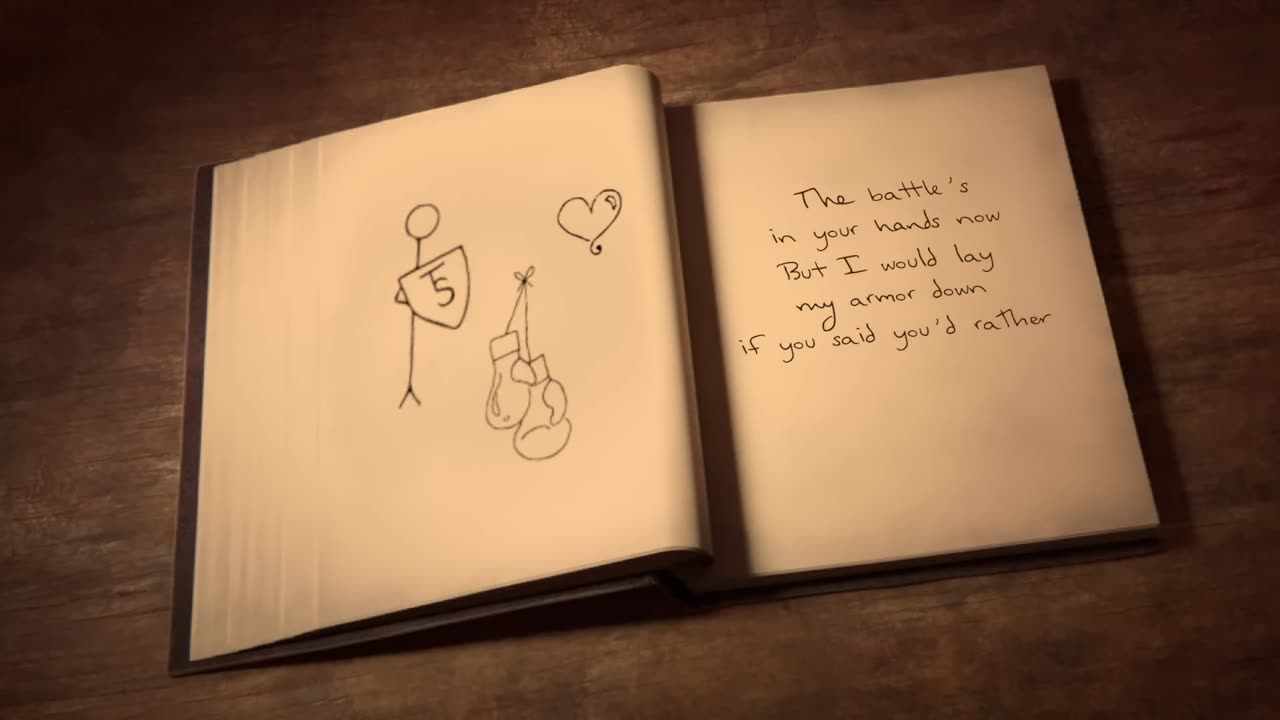 5
The battle's
in your hands now
But I would lay
my armor down
if you said you'd rather